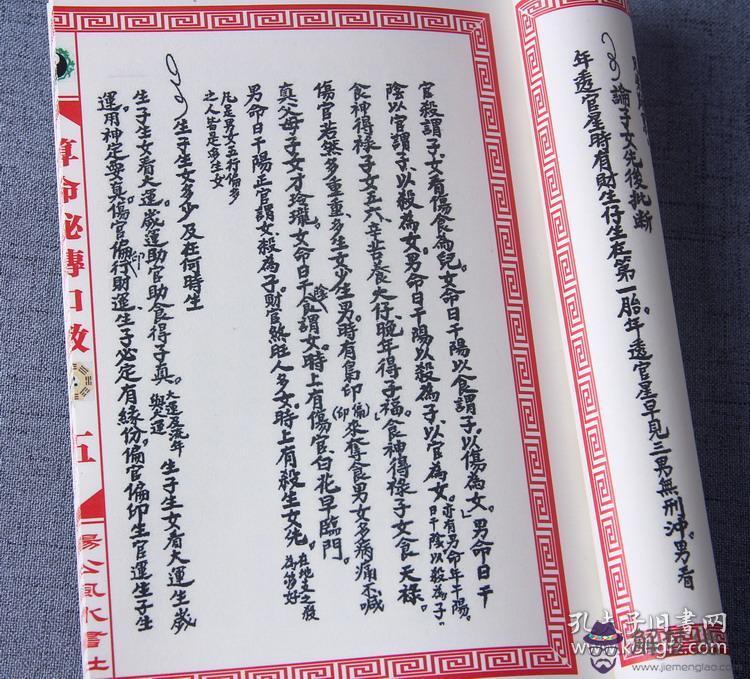 論子女先後批断
年透官星時有財生仔生在第一胎。年透官星早見三男無刑沖。男看
官殺謂子女看傷食為兒。女命日干陽以食謂子以傷為女。」男命日干
陰以官謂子以殺為女。男命日干陽以殺為子以官為女。
亦有男命年干陽。
日干陰以殺為子。
食神得祿子女五六。辛苦養大仔。晚年得子福。食神得祿子女食天祿。
傷官若然多重重、多生女少生男。時有梟印來奪食男女多病痛不喊
(偏印)
真父母子女才玲瓏。女命日干食謂女。時上有傷官、白花早臨門。
陰
男命日干陽正官謂女殺為子財官煞旺人多女。時上有殺生女先。
在地支之殺
為第好
凡是男女五行偏多
之人皆定多生女
生子生女多少及在何時生
生子生女看大運。歲運助官助食得子真。
大運及流年
與大運
生子生女看大運生歲
運用神定要真。傷官偏行財運生子必定有緣份。偏官偏印生官運生子生
印
算命秘傳口訣
五
楊公風水書社
孔夫子旧书网
www.kongfz.com
解夢佬
www.jiemenglao.com